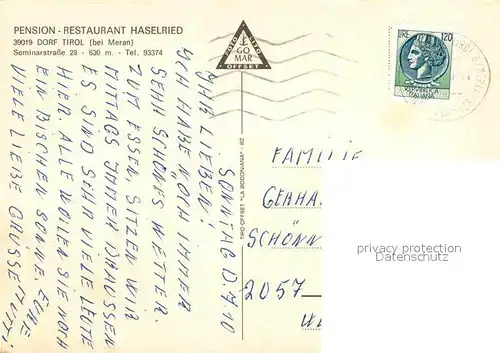 PENSION - RESTAURANT HASELRIED
39019 DORF TIROL (bei Meran)
Seminarstraße 28 - 630 m. - Tel. 93374
FOTO LITO
GO
MAR
OFFSET
LIRE 120
REPUBBLICA
ITALIANA
SONNTAG D. 7.10
IHR LIEBEN!
ICH HABE NOCH IMMER
SEHR SCHÖNES WETTER.
ZUM ESSEN, SITZEN WIR
MITTAGS IMMER DRAUSSEN
ES SIND SEHR VIELE LEUTE
HIER. ALLE WOLEN SIE NOCH
EIN BISCHEN SONNE. EUCH
VIELE LIEBE GRÜSSE "MUTTI
TIPO-OFFSET "LA BODONIANA" - BZ
FAMILIE
GERHA
SCHÖNN
2057
privacy protection
Datenschutz